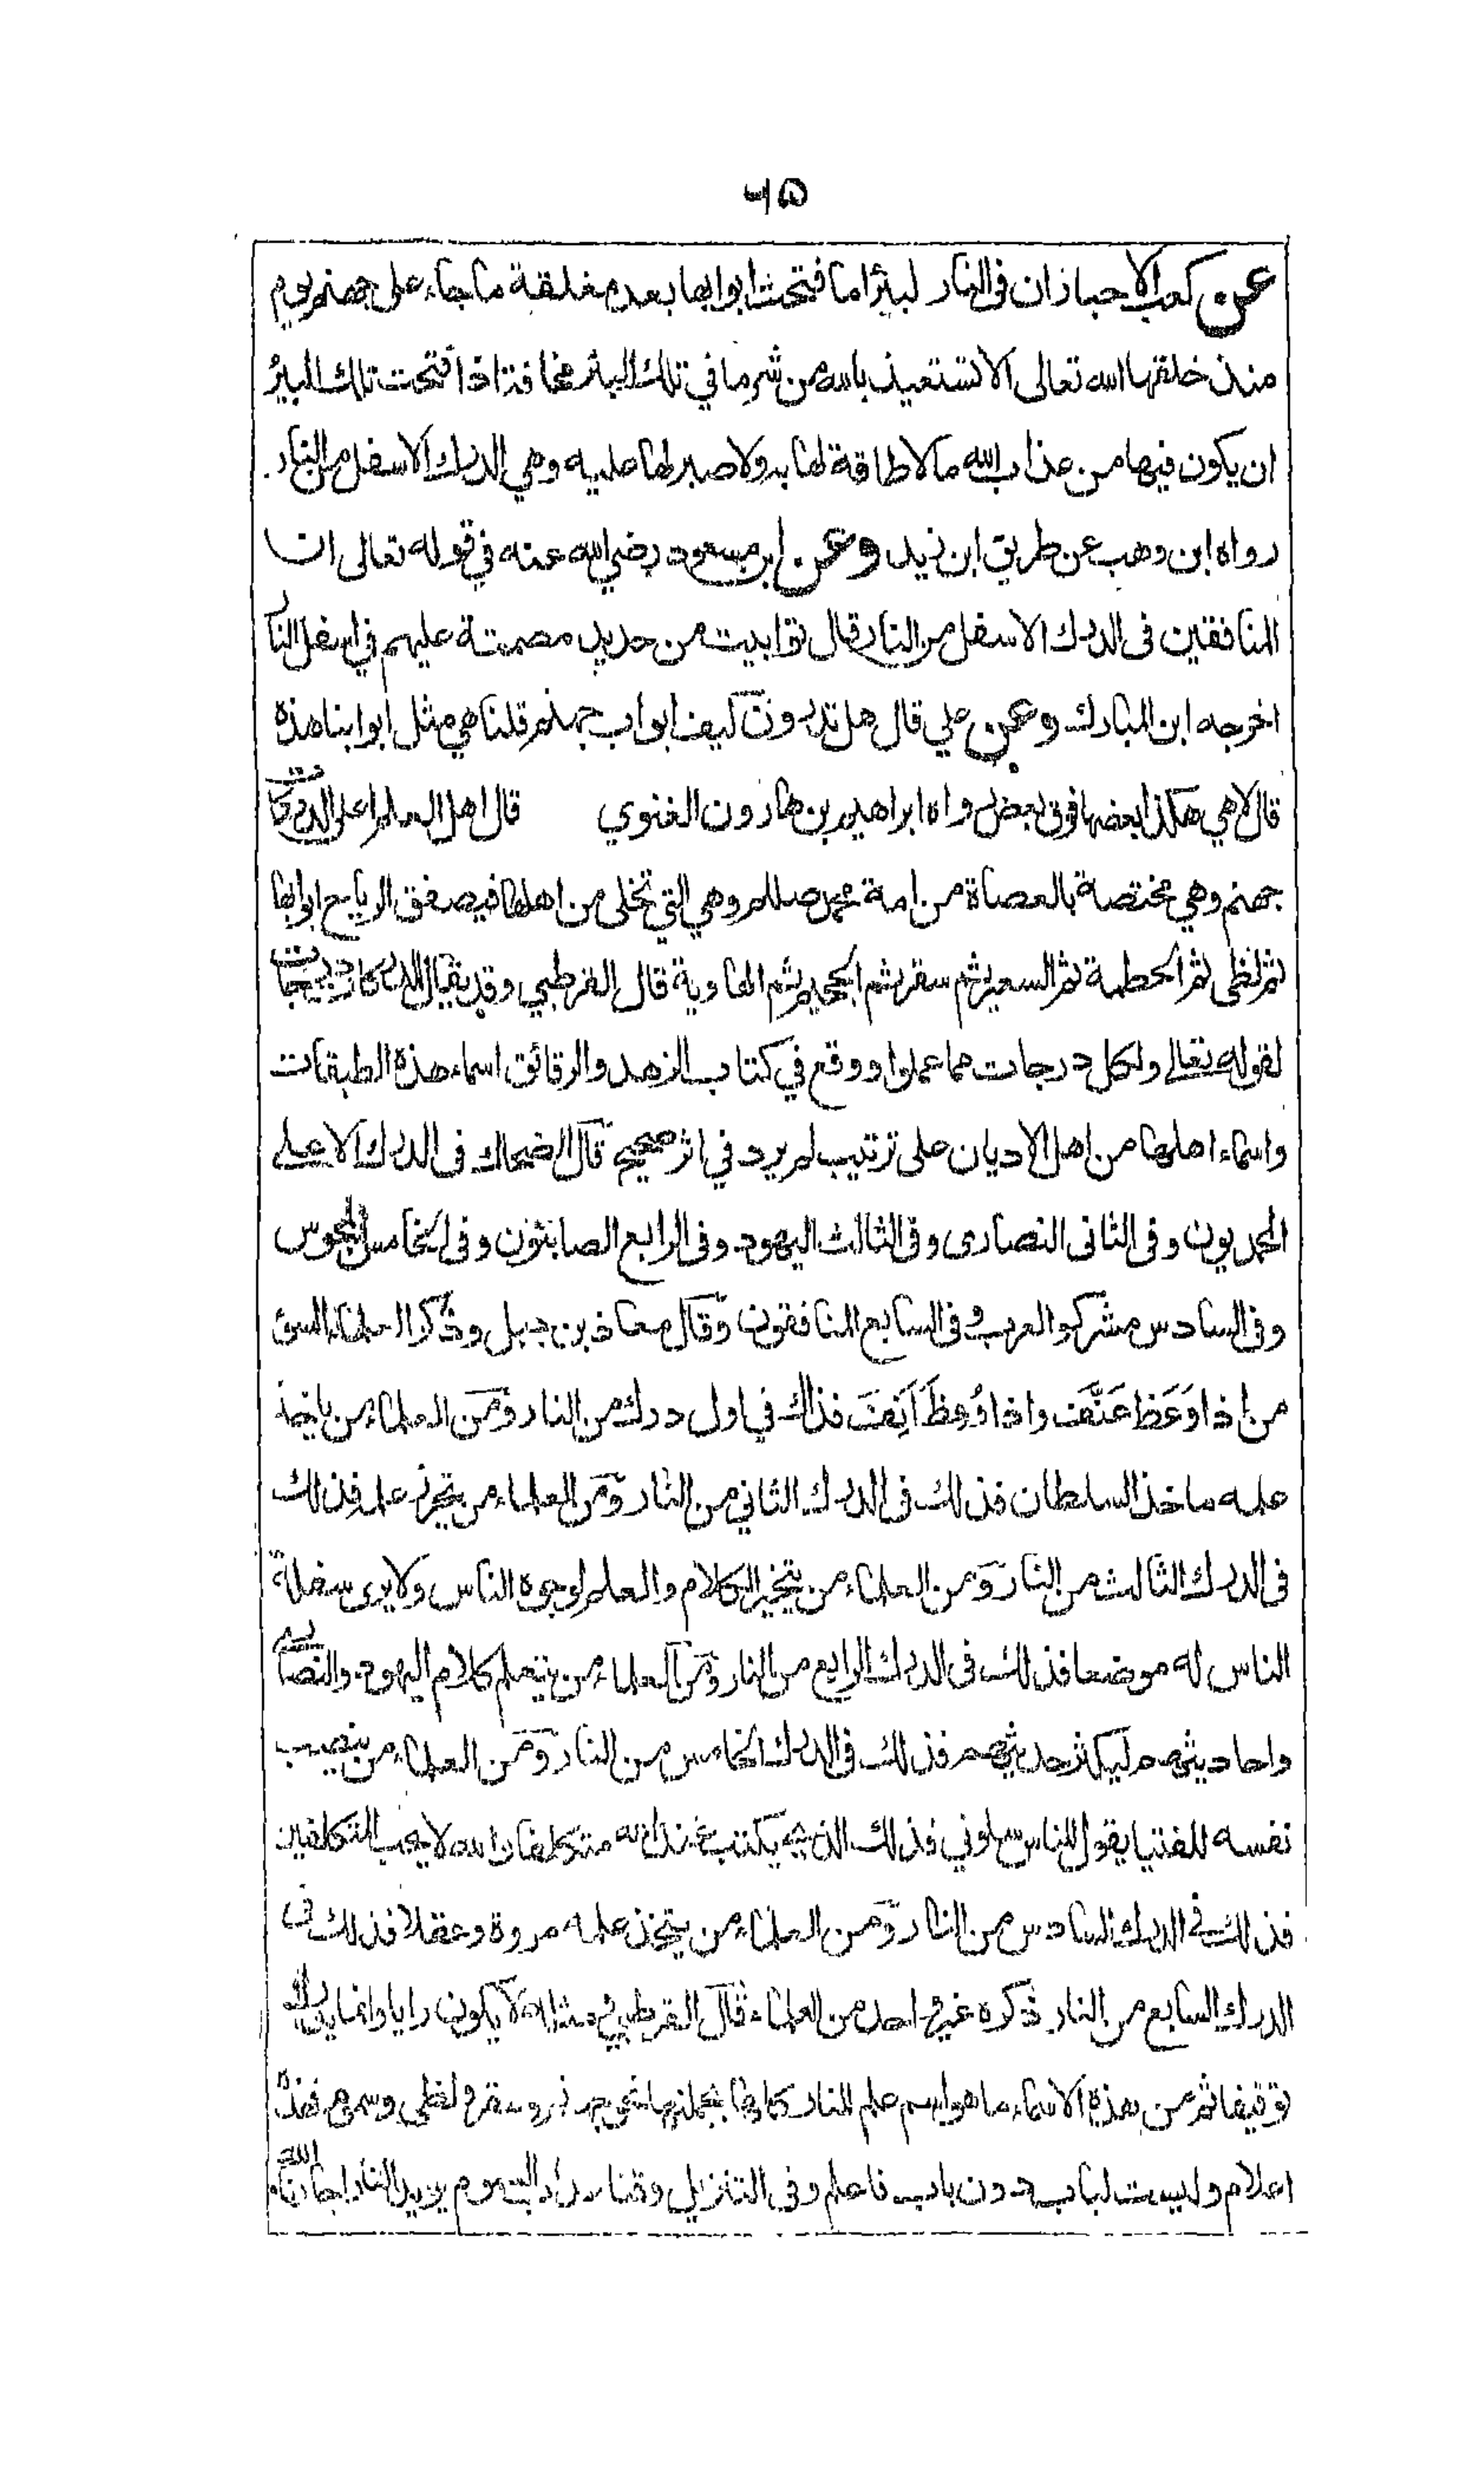 عن كعب الاحبار ان فى النار لبئرا ما فتحت ابوابها بعد مغلقة ما جاء على جهنم يوم
منذ خلقها الله تعالى الا تستعيذ بالله من شر ما في تلك البئر مخافة اذا فتحت تلك البئر
ان يكون فيها من عذاب الله ما لا طاقة لها به ولا صبر لها عليه وهي الدرك الاسفل من النار
رواه ابن وهب عن طريق ابن زيد وعن ابن مسعود رضي الله عنه في قوله تعالى ان
المنافقين فى الدرك الاسفل من النار قال توابيت من حديد مصمتة عليهم في اسفل النار
اخرجه ابن المبارك وعن علي قال هل تدرون كيف ابواب جهنم قلنا هي مثل ابوابنا هذه
قال لا هي هكذا بعضها فوق بعض رواه ابراهيم بن هارون الغنوي قال اهل العلم اعلى الدركات
جهنم وهي مختصة بالعصاة من امة محمد صللم وهي التي تخلى من اهلها فيصفق الرياح ابوابها
ثم لظى ثم الحطمة ثم السعير ثم سقر ثم الجحيم ثم الهاوية قال القرطبي وقد يقال للدركات درجات
لقوله تعالى ولكل درجات مما عملوا ووقع في كتاب الزهد والرقائق اسماء هذه الطبقات
واسماء اهلها من اهل الاديان على ترتيب لم يرد في اثر صحيح قال الضحاك فى الدرك الاعلى
المحمديون وفى الثانى النصارى وفى الثالث اليهود وفى الرابع الصابئون وفى الخامس المجوس
وفى السادس مشركوا العرب وفى السابع المنافقون وقال معاذ بن جبل وذكر العلماء السوء
من اذا وَعَظ عَنَّفَ واذا وُعِظَ اَنِفَ فذاك في اول درك من النار ومن العلماء من ياخذ
علمه ماخذ السلطان فذلك فى الدرك الثاني من النار ومن العلماء من يتحرز علمه فذلك
فى الدرك الثالث من النار ومن العلماء من يتخير الكلام والعلم لوجوه الناس ولا يرى سفلة
الناس له موضعا فذلك فى الدرك الرابع من النار ومن العلماء من يتعلم كلام اليهود والنصارى
واحاديثهم ليكثر حديثهم فذلك فى الدرك الخامس من النار ومن العلماء من ينصب
نفسه للفتيا يقول للناس سلوني فذلك الذي يكتب عند الله متكلفا والله لا يحب المتكلفين
فذلك في الدرك السادس من النار ومن العلماء من يتخذ علمه مروة وعقلا فذلك فى
الدرك السابع من النار ذكره غير واحد من العلماء قال القرطبي ومثله لا يكون رايا وانما يدرك
توقيفا ثم من هذه الاسماء ما هو اسم علم للنار كلها بجملتها نحو جهنم وسقر ولظى وسموم فهذه
اعلام وليست لباب دون باب فاعلم وفى التنزيل وقنا عذاب السموم يريد النار اجارنا الله